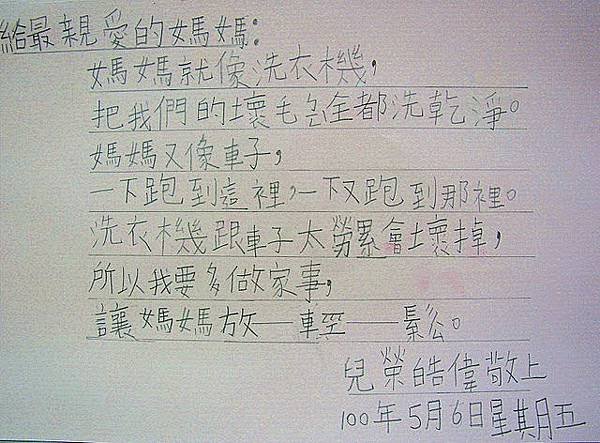 給最親愛的媽媽:
媽媽就像洗衣機,
把我們的壞毛全都洗乾淨。
媽媽又像車子,
一下跑到這裡,一下又跑到那裡。
洗衣機跟車子太勞累會壞掉,
所以我要多做家事,
讓媽媽放──輕──鬆。
兒 榮皓偉敬上
100年5月6日星期五